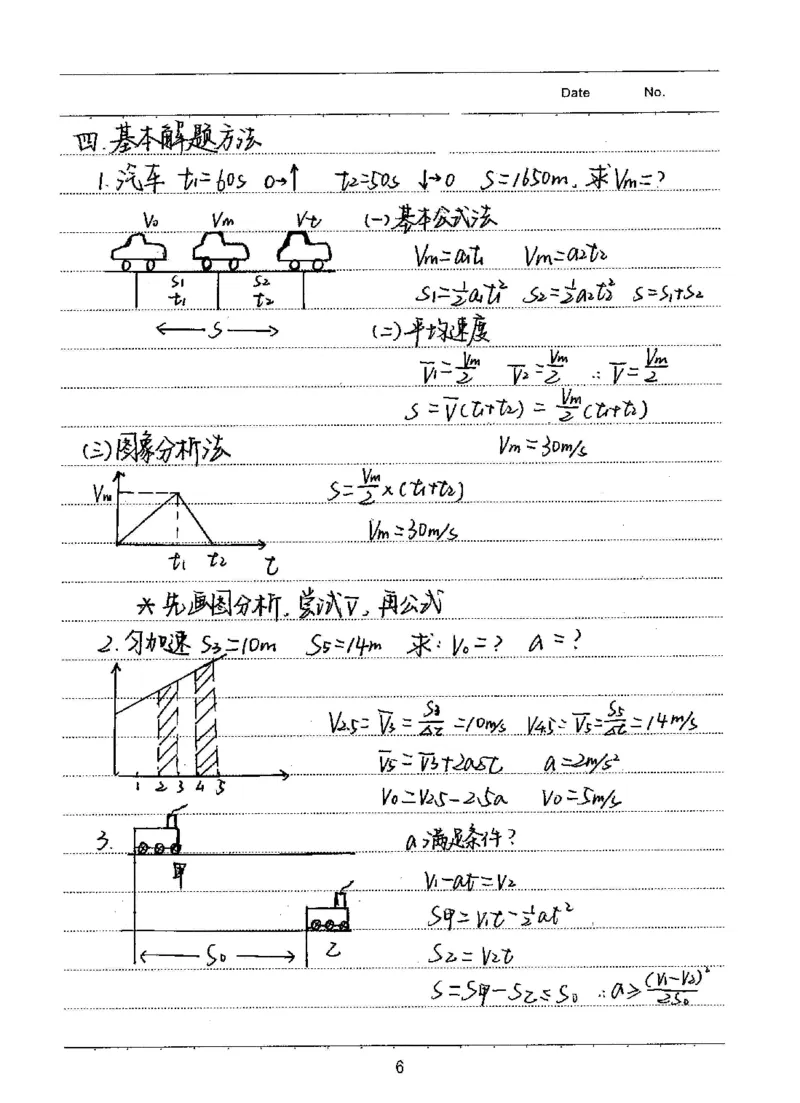 Date No.
四.基本解题方法
1.汽车 t₁=60s 0→↑ t₂=50s ↓→0 S=1650m,求Vm=?
V₀ Vm Vt
(一)基本公式法
Vm=a₁t₁ Vm=a₂t₂
S₁ S₂
t₁ t₂
S₁=½a₁t₁² S₂=½a₂t₂² S=S₁+S₂
S
(二)平均速度
V̅₁=Vm/2 V̅₂=Vm/2 ∴V̅=Vm/2
S=V̅(t₁+t₂)=Vm/2(t₁+t₂)
Vm=30m/s
(三)图象分析法
Vm
t₁ t₂ t
S=Vm/2×(t₁+t₂)
Vm=30m/s
*先画图分析,尝试V̅,再公式
2.匀加速 S₃=10m S₅=14m 求:V₀=? a=?
1 2 3 4 5
V2.5=V̅₃=S₃/Δt=10m/s V4.5=V̅₅=S₅/Δt=14m/s
V̅₅=V̅₃+2aΔt a=2m/s²
V₀=V2.5-2.5a V₀=5m/s
3.
甲
S₀ 乙
a满足条件?
V₁-at=V₂
S甲=V₁t-½at²
S乙=V₂t
S=S甲-S乙≤S₀ ∴a≥(V₁-V₂)²/2S₀
6